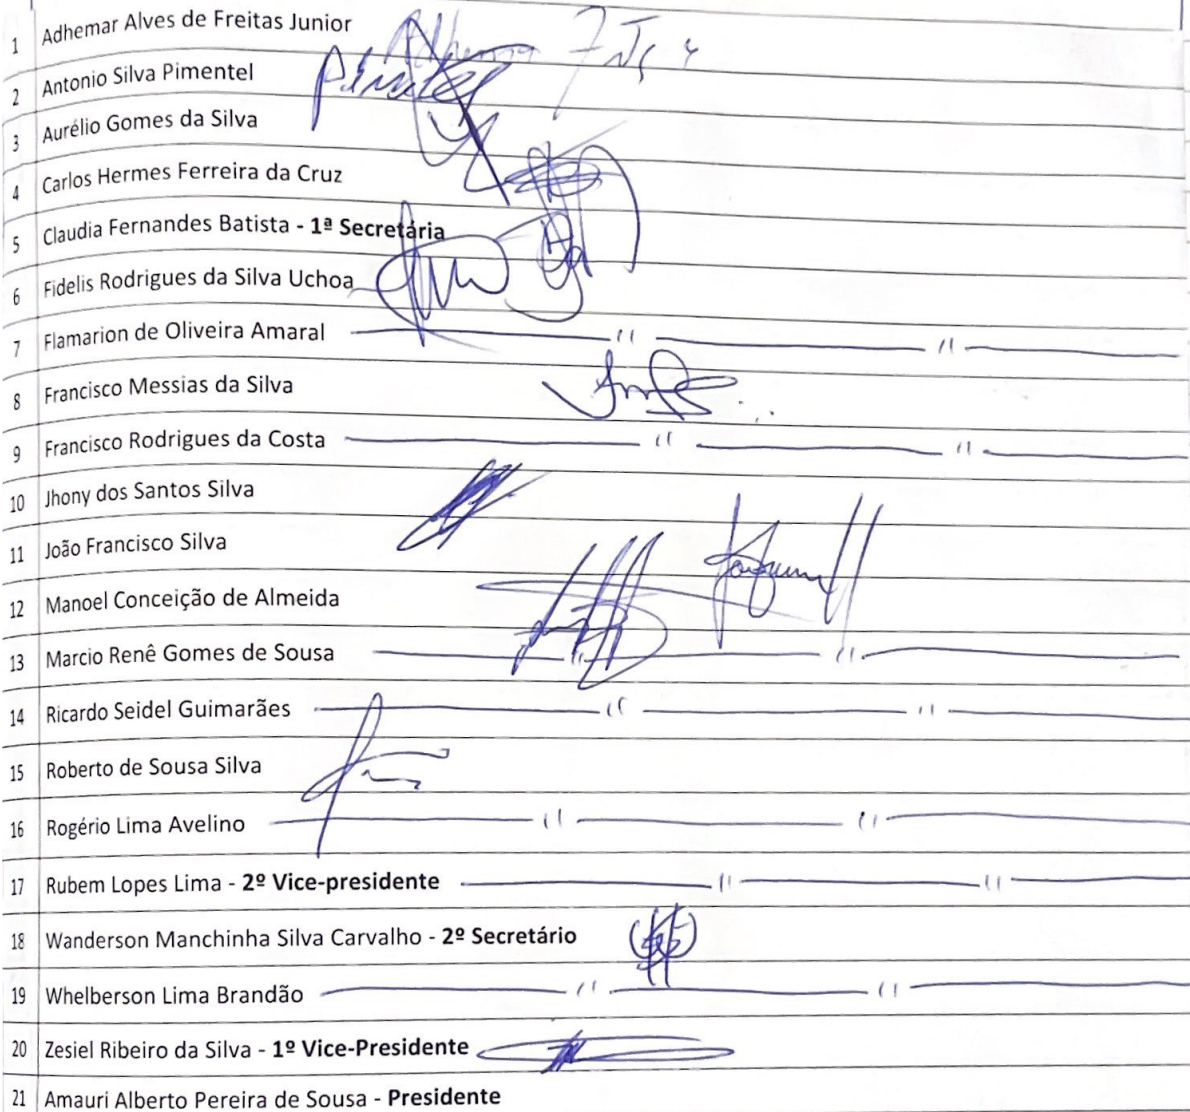 1 Adhemar Alves de Freitas Junior
2 Antonio Silva Pimentel Pimentel
3 Aurélio Gomes da Silva
4 Carlos Hermes Ferreira da Cruz
5 Claudia Fernandes Batista - 1ª Secretária
6 Fidelis Rodrigues da Silva Uchoa
7 Flamarion de Oliveira Amaral
8 Francisco Messias da Silva
9 Francisco Rodrigues da Costa
10 Jhony dos Santos Silva
11 João Francisco Silva
12 Manoel Conceição de Almeida
13 Marcio Renê Gomes de Sousa
14 Ricardo Seidel Guimarães
15 Roberto de Sousa Silva
16 Rogério Lima Avelino
17 Rubem Lopes Lima - 2º Vice-presidente
18 Wanderson Manchinha Silva Carvalho - 2º Secretário
19 Whelberson Lima Brandão
20 Zesiel Ribeiro da Silva - 1º Vice-Presidente
21 Amauri Alberto Pereira de Sousa - Presidente